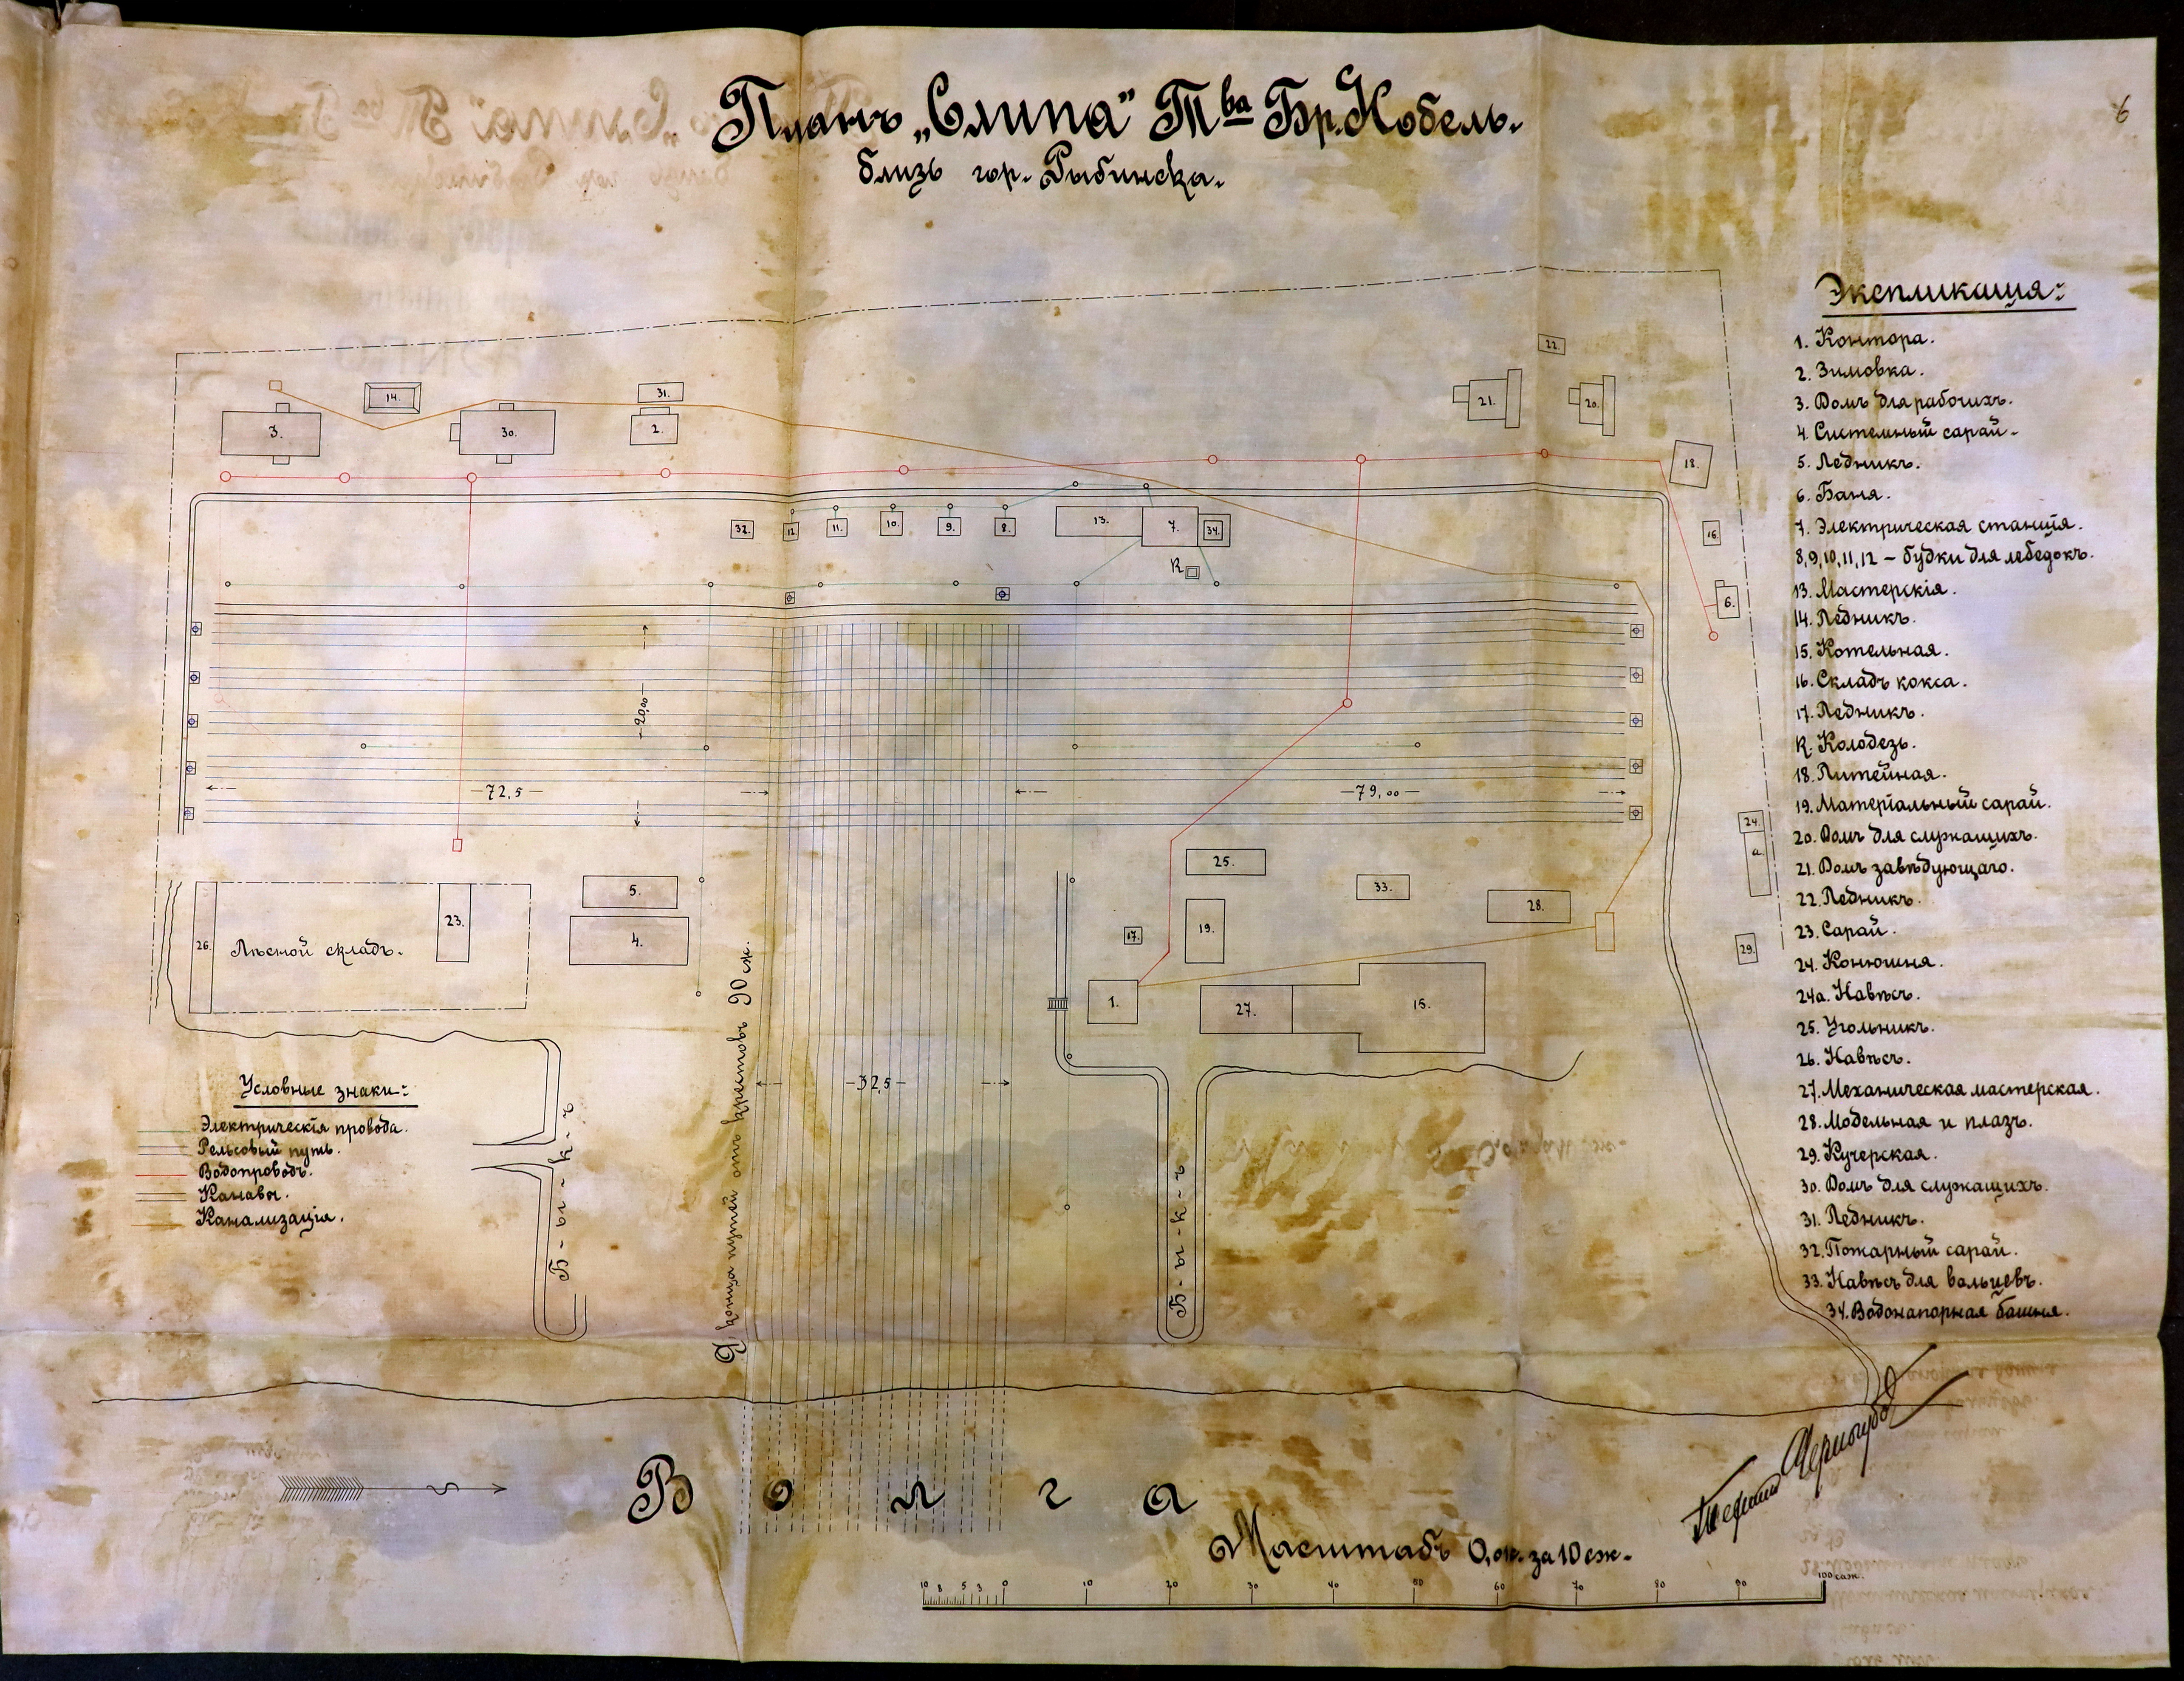 Планъ „Слипа” Т<sup>ва</sup> Бр. Нобель.
близъ гор. Рыбинска.
6
Экспликація:
1. Контора.
2. Зимовка.
3. Домъ для рабочихъ.
4. Системный сарай.
5. Ледникъ.
6. Баня.
7. Электрическая станція.
8,9,10,11,12 – будки для лебедокъ.
13. Мастерскія.
14. Ледникъ.
15. Котельная.
16. Складъ кокса.
17. Ледникъ.
К. Колодезь.
18. Литейная.
19. Матеріальный сарай.
20. Домъ для служащихъ.
21. Домъ завѣдующаго.
22. Ледникъ.
23. Сарай.
24. Конюшня.
24а. Навѣсъ.
25. Угольникъ.
26. Навѣсъ.
27. Механическая мастерская.
28. Модельная и плазъ.
29. Кучерская.
30. Домъ для служащихъ.
31. Ледникъ.
32. Пожарный сарай.
33. Навѣсъ для вальцевъ.
34. Водонапорная башня.
22.
14.
31.
21.
20.
3.
30.
2.
18.
32.
12
11.
10.
9.
8.
13.
7.
34
16.
К
6.
–20,00–
–72,5–
–79,00–
24.
а.
25.
5.
33.
26.
23.
28.
19.
Лѣсной складъ.
4.
17.
29.
1.
27.
15.
До конца путей отъ крестовъ 90 сж.
–32,5–
Условные знаки:
Электрическія провода.
Рельсовый путь.
Водопроводъ.
Канавы.
Канализація.
Б-ы-к-ъ
Б-ы-к-ъ
Волга
Масштабъ 0,01 за 10 сж.
10 8 5 3 0 10 20 30 40 50 60 70 80 90 100 саж.